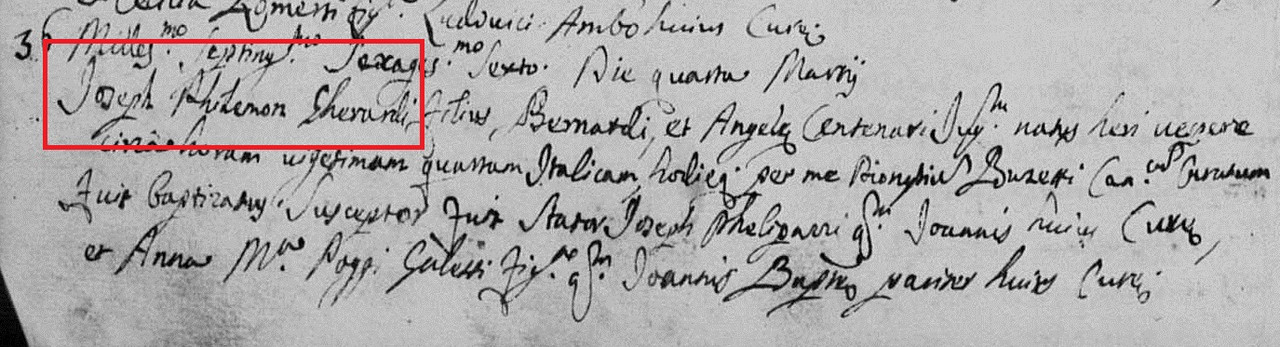 Ludovici Ambo huius Curę
36 Milles.mo Septing.mo Sexages.mo Sexto. Die quarta Martij
Joseph Philemon Gherardi filius Bernardi, et Angelę Centenari Jug.m natus heri vespere
circa horam vigesimam quartam Italicam, hodieq. per me Dionysiū Buzetti Can.cum Curatum
fuit baptizatus. Susceptor fuit Stator Joseph Phelipazzi q.m Joannis huius Curę,
et Anna M.a Poggi Galetti fig.a q.m Joannis Baptę pariter huius Curę.